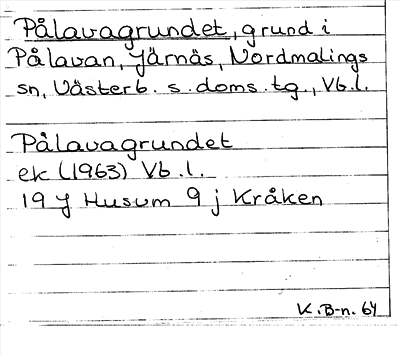 Pålavagrundet, grund i
Pålavan, Järnäs, Nordmalings
sn, Västerb. s. doms. tg., Vb.l.
Pålavagrundet
ek (1963) Vb.l.
19 J Husum 9 j Kråken
K.B-n. 64